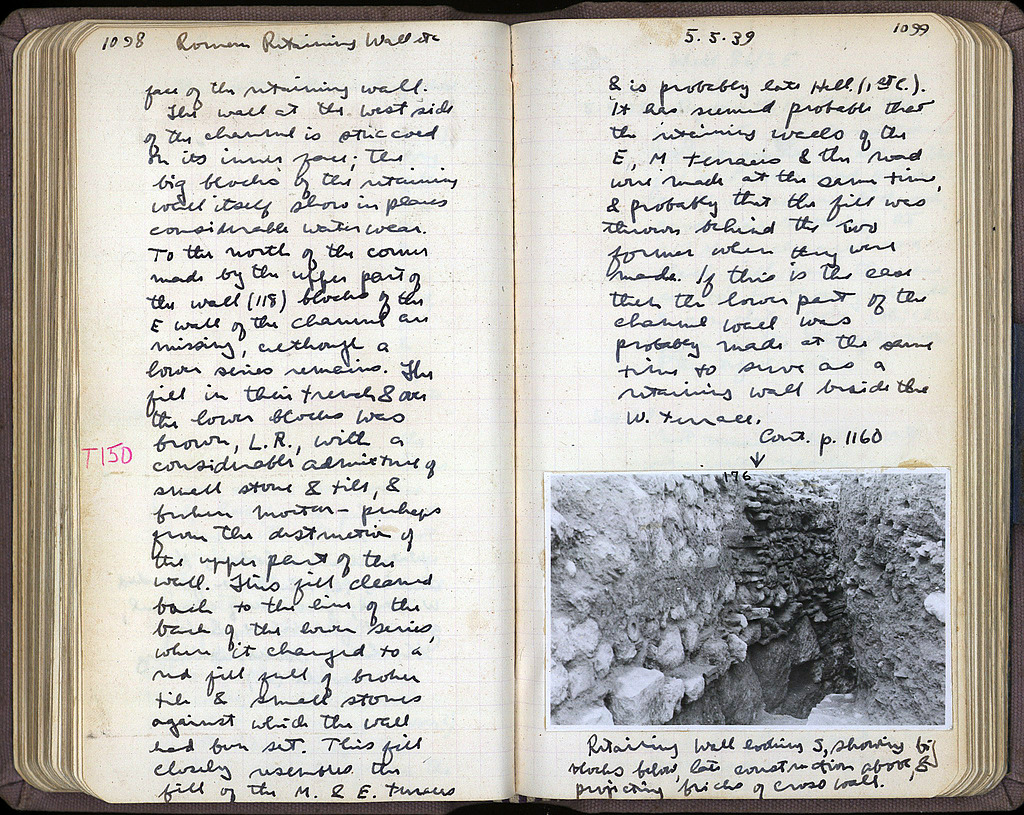 1098 Roman Retaining Wall etc
face of the retaining wall.
The wall at the west side
of the channel is stuccoed
on its inner face; the
big blocks of the retaining
wall itself show in places
considerable water wear.
To the north of the corner
made by the upper part of
the wall (118) blocks of the
E wall of the channel are
missing, although a
lower series remains. The
fill in their trench & over
the lower blocks was
brown, L.R., with a
T150
considerable admixture of
small stone & tile, &
broken mortar – perhaps
from the destruction of
the upper part of the
wall. This fill cleaned
back to the line of the
back of the lower series,
where it changed to a
red fill full of broken
tile & small stones
against which the wall
had been set. This fill
closely resembles the
fill of the M. & E. Terraces
5.5.39 1099
& is probably late Hell. (1st C.).
It has seemed probable that
the retaining walls of the
E, M Terraces & the road
were made at the same time,
& probably that the fill was
thrown behind the two
former when they were
made. If this is the case
then the lower part of the
channel wall was
probably made at the same
time to serve as a
retaining wall beside the
W. Terrace.
Cont. p. 1160
176
Retaining Wall looking S, showing big
blocks below, late construction above, &
projecting bricks of cross wall.